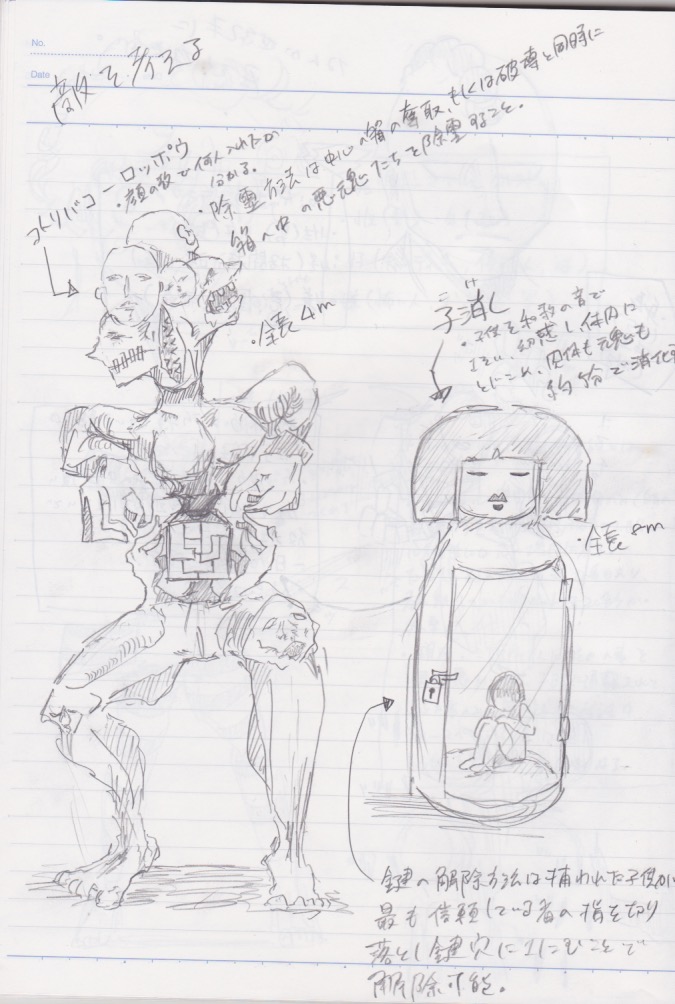 No.
Date
敵を考える
コトリバコーロッポウ
・顔の数で何人入れたか
分かる。
・除霊方法は中心の箱の奪取、もしくは破壊と同時に
箱の中の悪魂たちを除霊すること。
・全長4m
け
子消し
・子供を和歌の音で
誘惑し、体内に
とじこめ、肉体も元魂も
約 分で消化
・全長8m
鍵の解除方法は捕われた子供が
最も信頼している者の指を切り
落とし鍵穴に こむことで
解除可能。